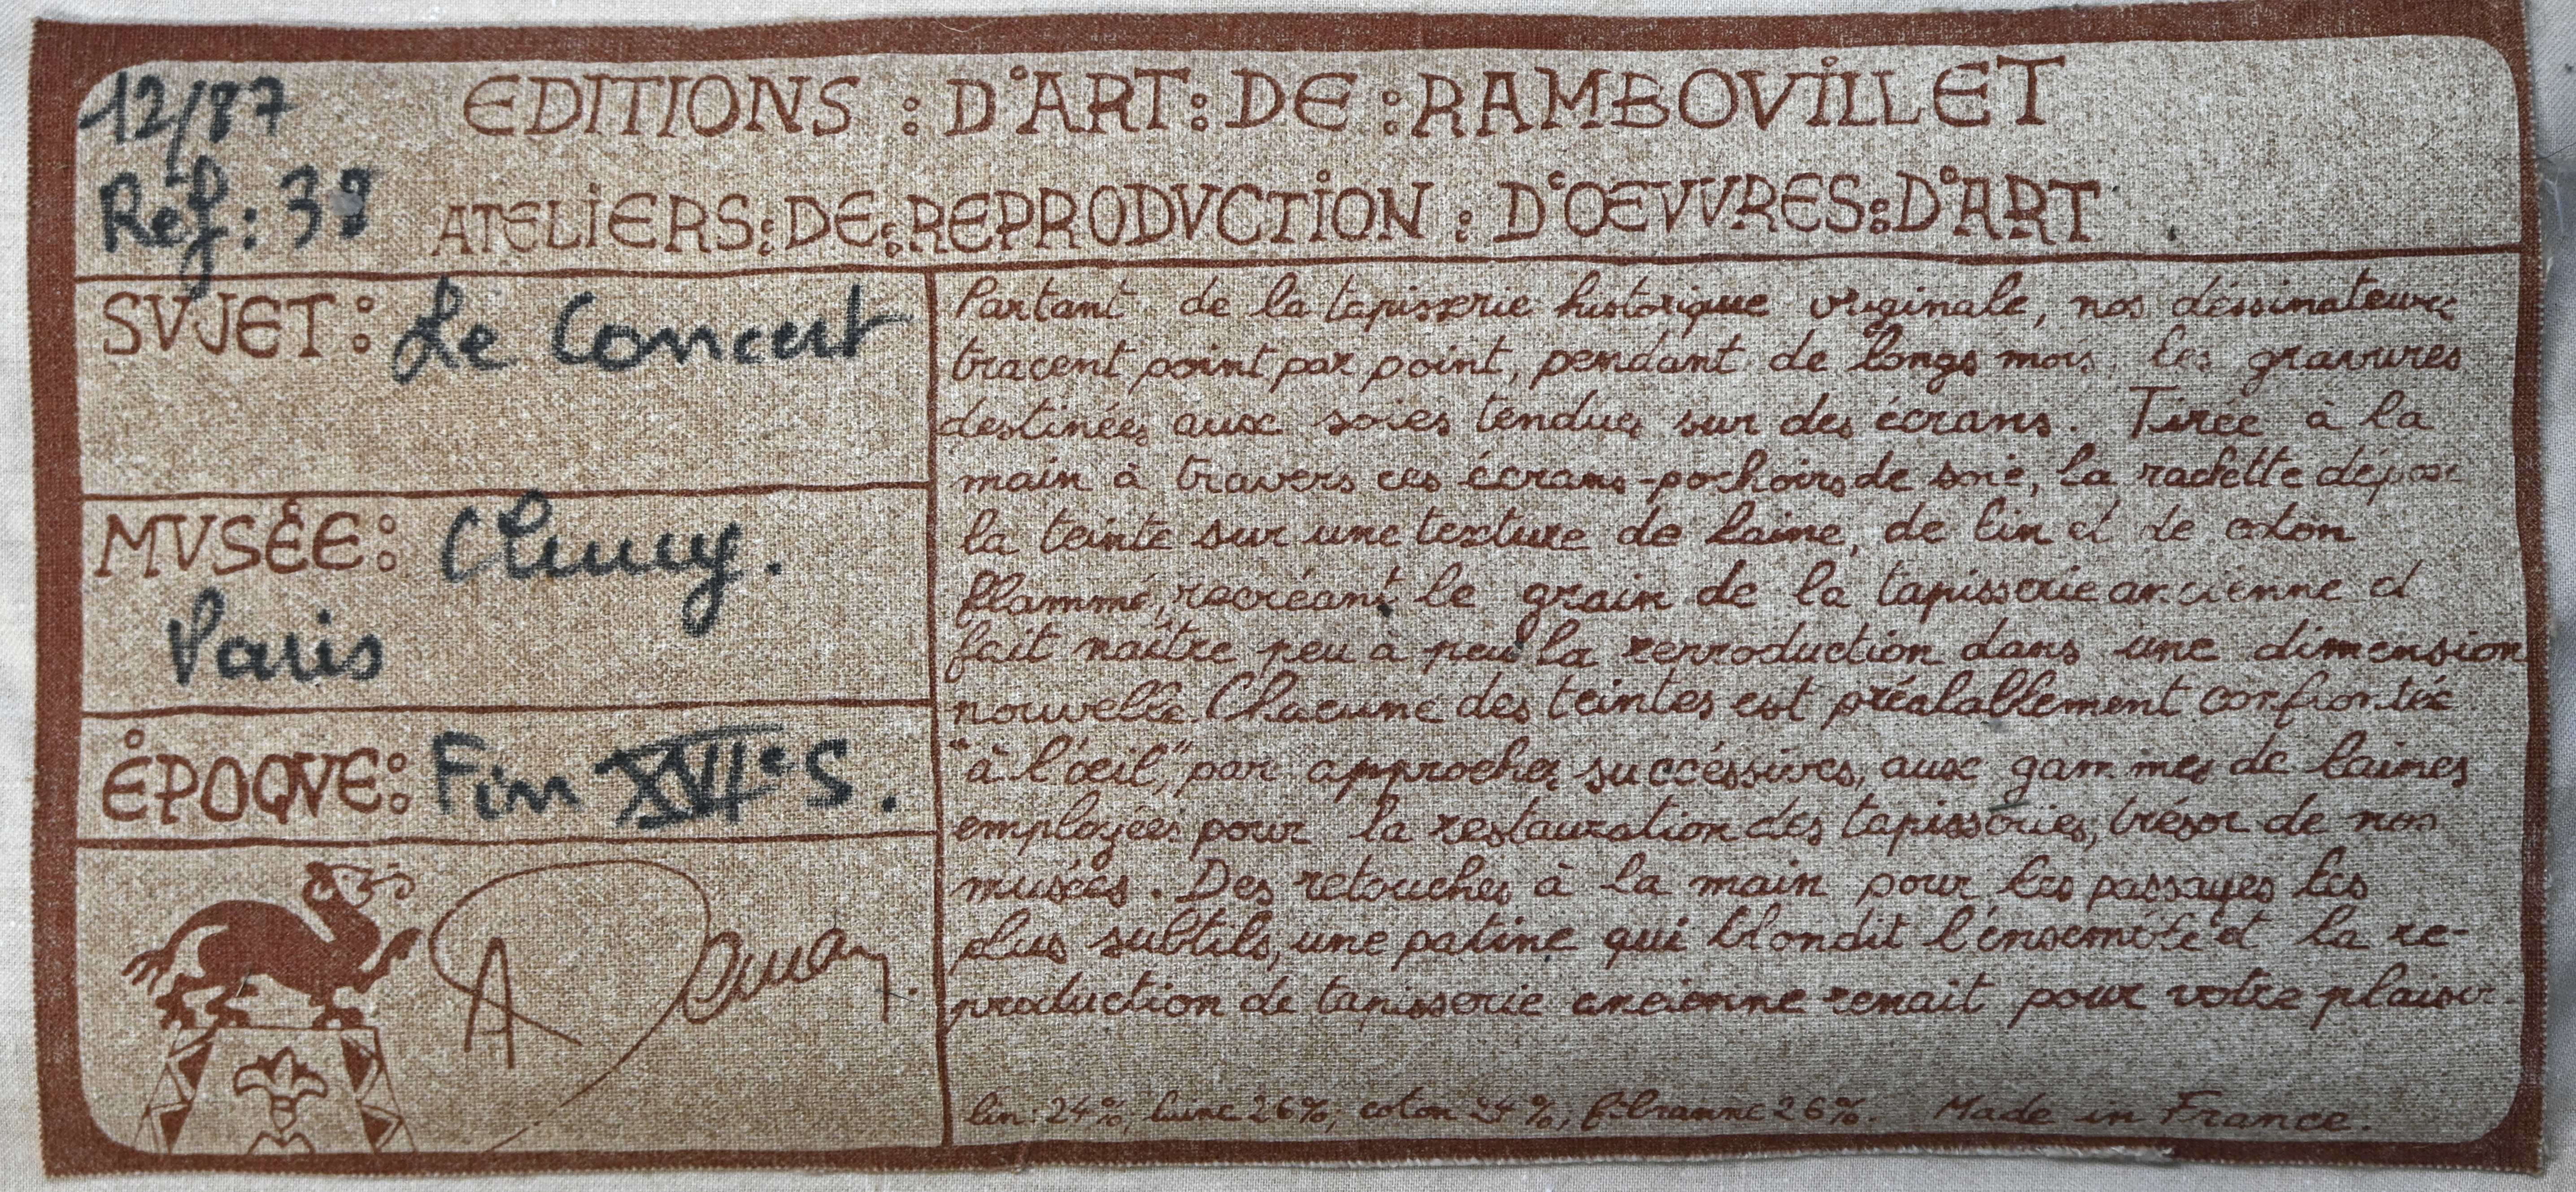 12/87
EDITIONS : D'ART : DE : RAMBOVILLET
Réf : 38
ATELIERS : DE : REPRODVCTION : D'ŒVVRES : D'ART
SVJET : Le Concert
MVSÉE : Cluny.
Paris
ÉPOQVE : Fin XVIe S.
Partant de la tapisserie historique originale, nos déssinateurs
tracent point par point, pendant de longs mois, les gravures
destinées aux soies tendues sur des écrans. Tirée à la
main à travers ces écrans-pochoirs de soie, la raclette dépose
la teinte sur une texture de laine, de lin et de coton
flammé, recréant le grain de la tapisserie ancienne et
fait naître peu à peu la reproduction dans une dimension
nouvelle. Chacune des teintes est préalablement confrontée
"à l'œil", par approches succéssives, aux gammes de laines
employées pour la restauration des tapisseries, trésor de nos
musées. Des retouches à la main pour les passages les
plus subtils, une patine qui blondit l'ensemble et la re-
production de tapisserie ancienne renait pour votre plaisir.
lin : 24%, laine 26%, coton 24%, fibranne 26%. Made in France.